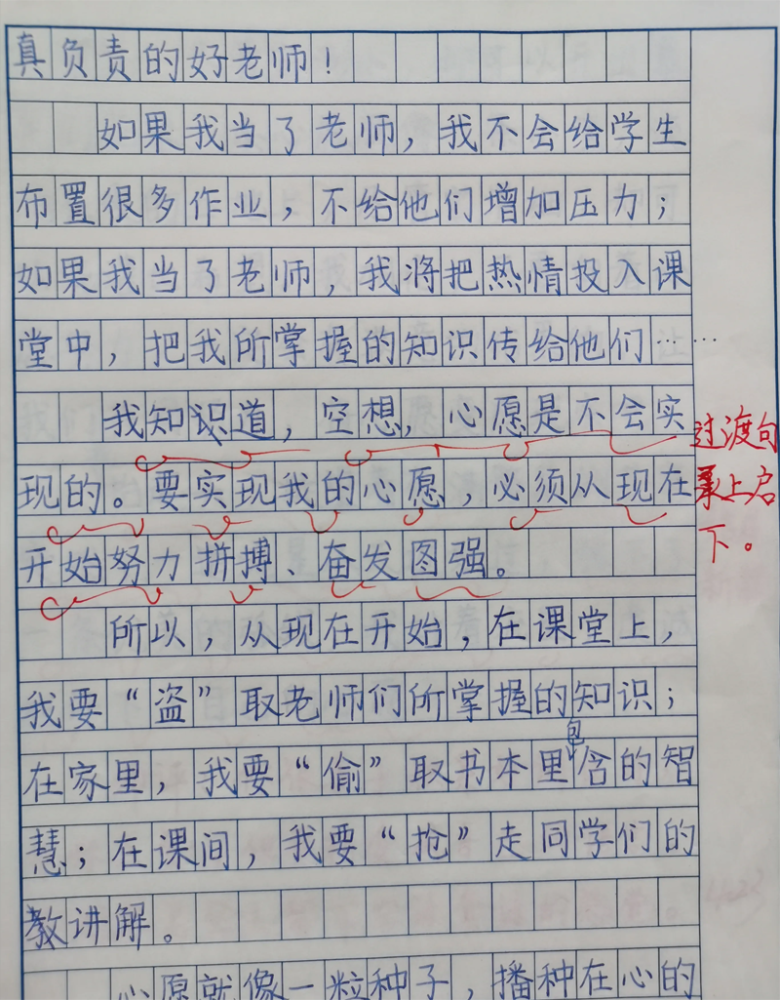 真负责的好老师！
如果我当了老师，我不会给学生
布置很多作业，不给他们增加压力；
如果我当了老师，我将把热情投入课
堂中，把我所掌握的知识传给他们……
我知识道，空想，心愿是不会实
现的。要实现我的心愿，必须从现在
开始努力拼搏、奋发图强。
过渡句
承上启
下。
所以，从现在开始，在课堂上，
我要“盗”取老师们所掌握的知识；
在家里，我要“偷”取书本里包含的智
慧；在课间，我要“抢”走同学们的
教讲解。
心愿就像一粒种子，播种在心的